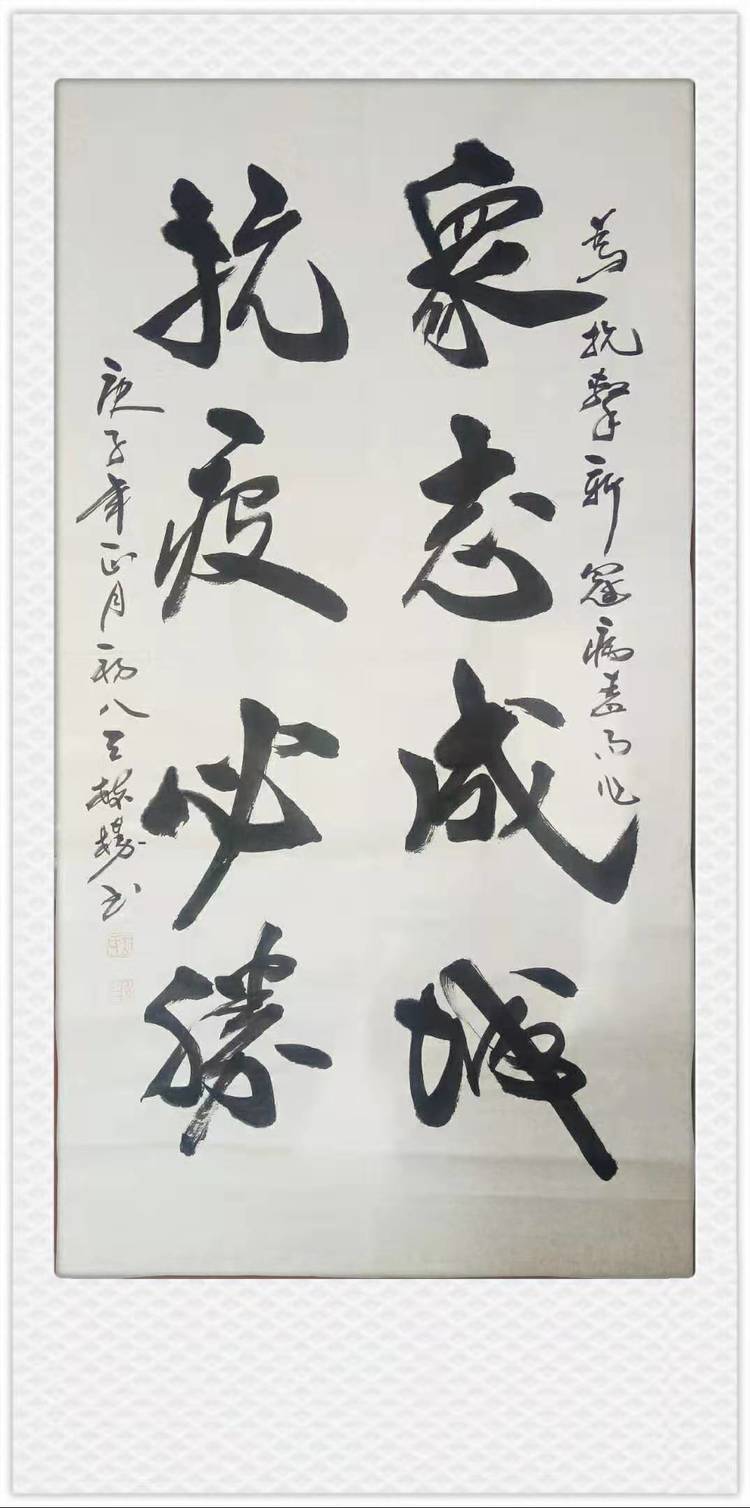 為抗擊新冠病毒而作
眾志成城
抗疫必勝
庚子年正月初八
書